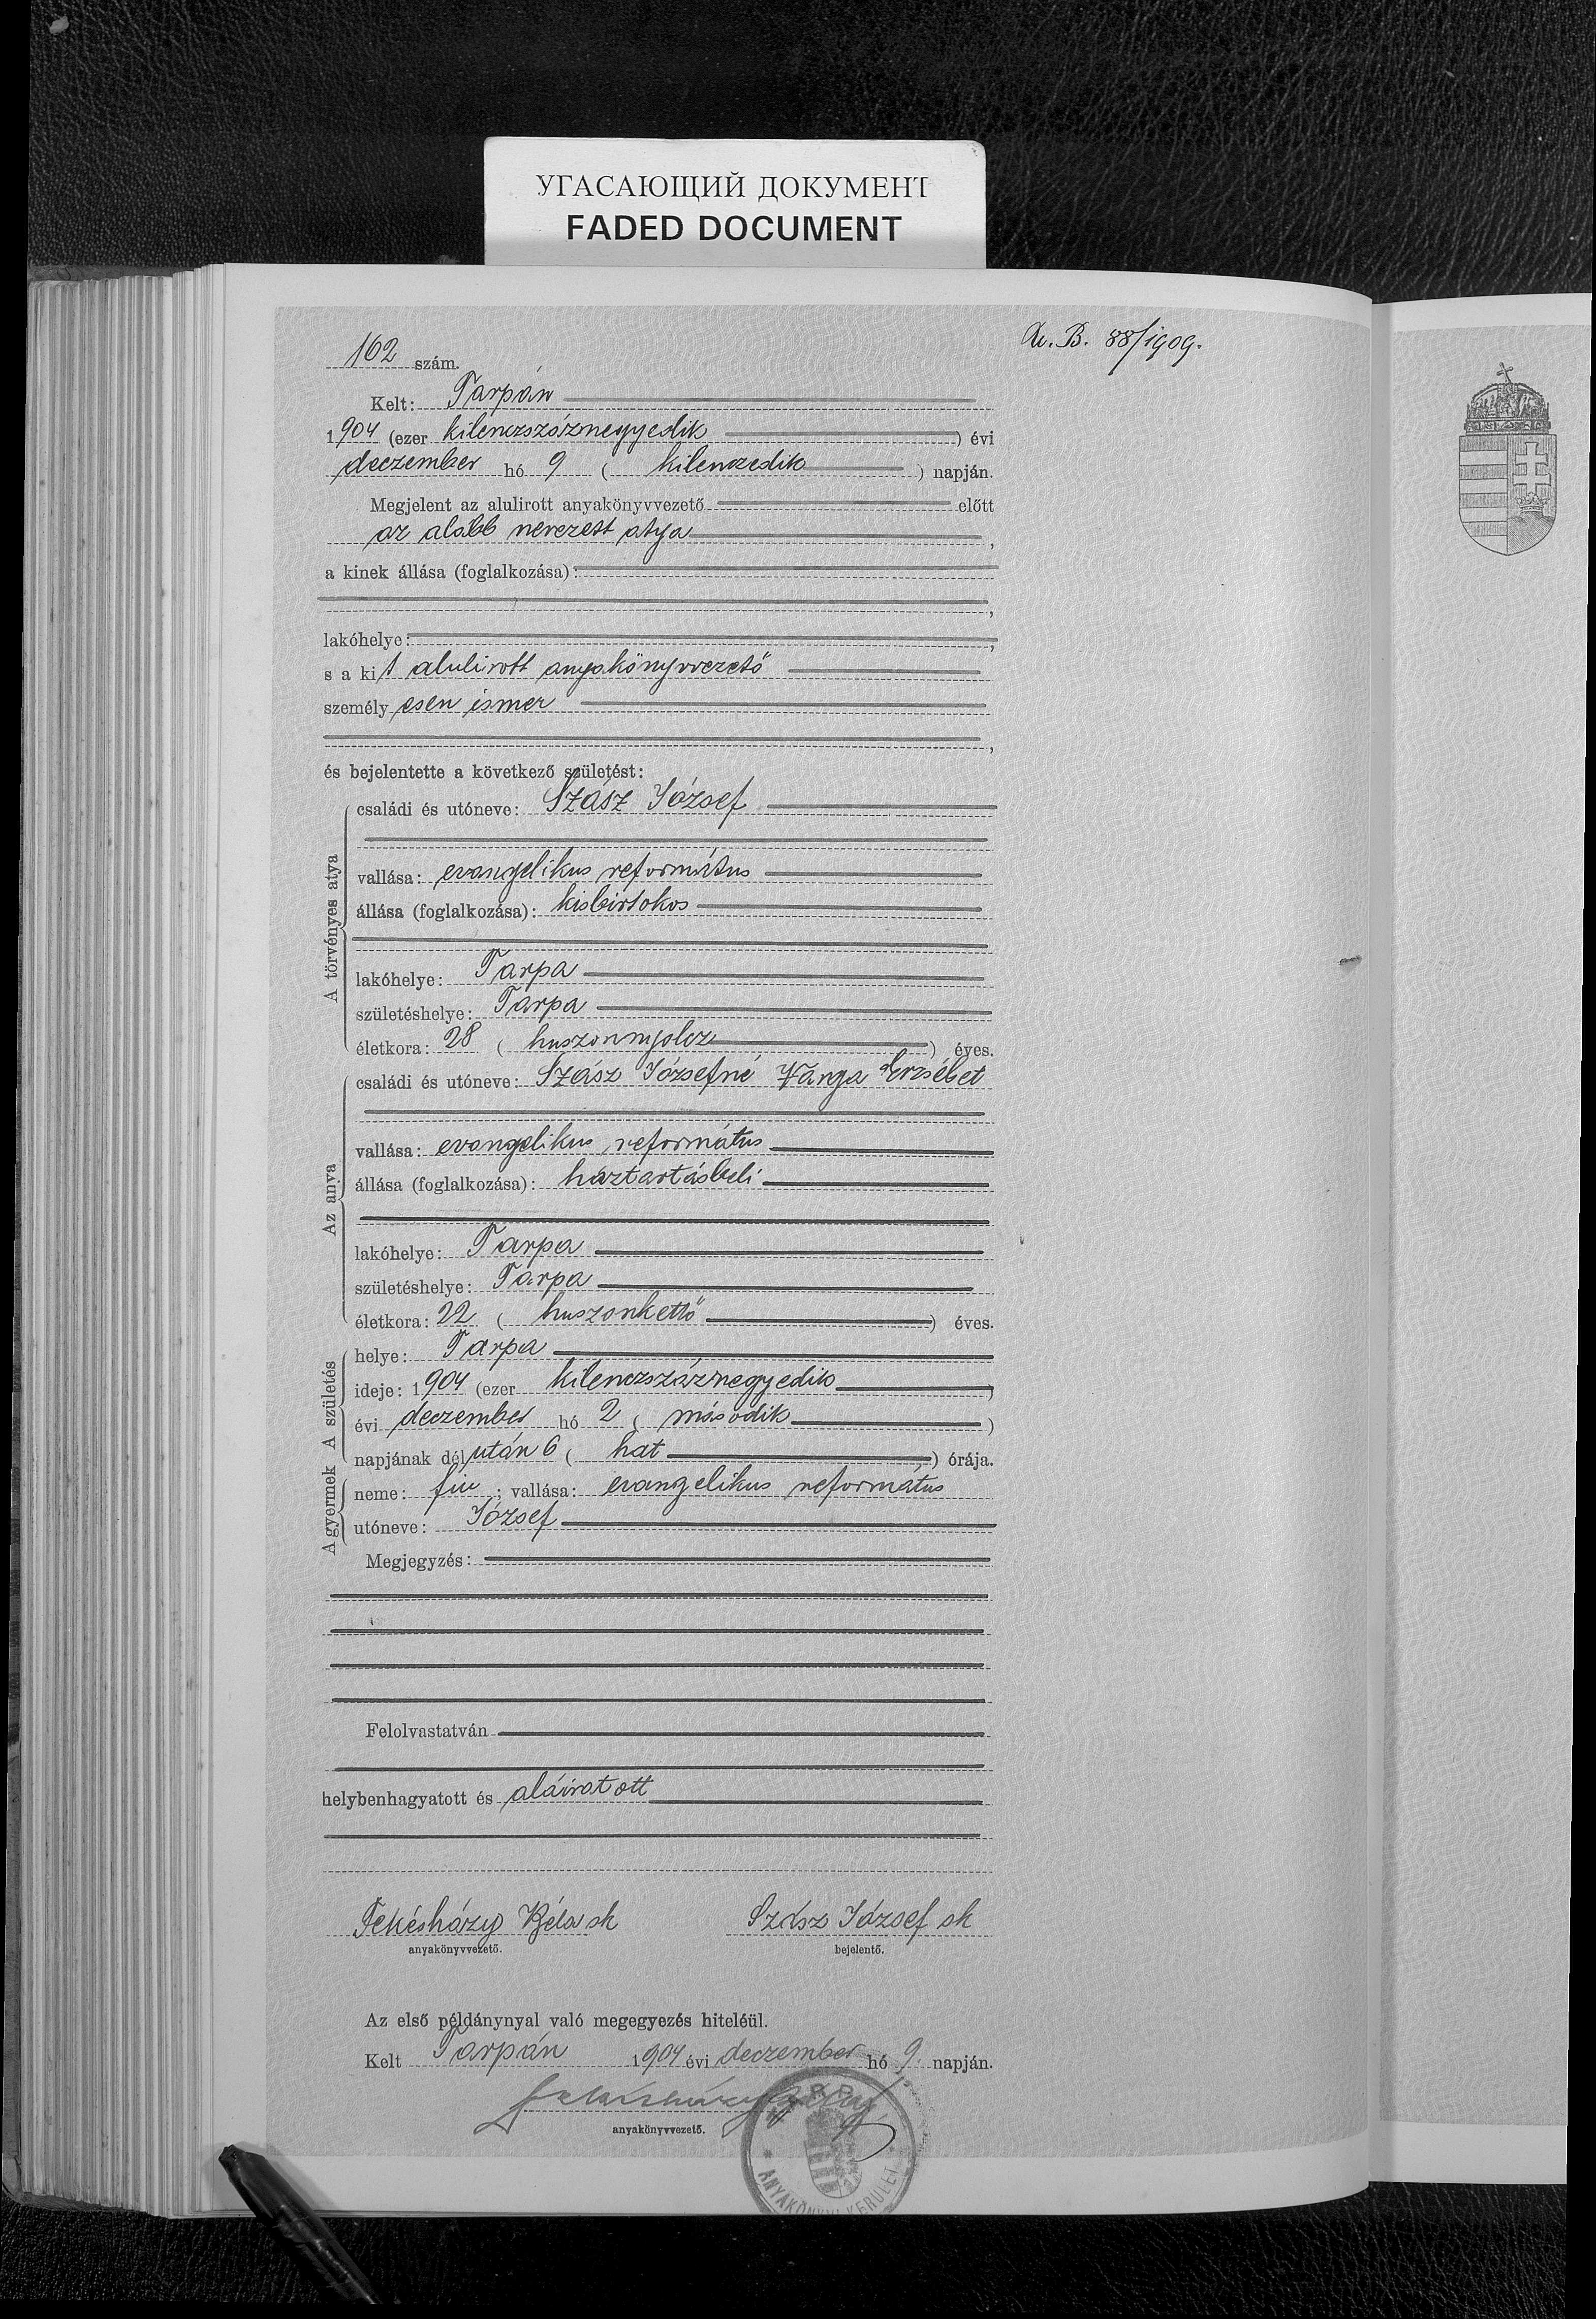 УГАСАЮЩИЙ ДОКУМЕНТ
FADED DOCUMENT
B. 88/1909.
162 szám.
Kelt: Tarpán
1904 (ezer kilenczszáznegyedik ) évi
deczember hó 9 ( kilenczedik ) napján.
Megjelent az alulirott anyakönyvvezető előtt
az alább nevezett atya ,
a kinek állása (foglalkozása):
,
lakóhelye: ,
s a kit alulirott anyakönyvvezető
személyesen ismer
,
és bejelentette a következő születést:
A törvényes atya
családi és utóneve: Szász József
vallása: evangelikus református
állása (foglalkozása): kisbirtokos
lakóhelye: Tarpa
születéshelye: Tarpa
életkora: 28 ( huszonnyolcz ) éves.
Az anya
családi és utóneve: Szász Józsefné Varga Erzsébet
vallása: evangelikus református
állása (foglalkozása): háztartásbeli
lakóhelye: Tarpa
születéshelye: Tarpa
életkora: 22 ( huszonkettő ) éves.
A születés
helye: Tarpa
ideje: 1904 (ezer kilenczszáznegyedik )
évi deczember hó 2 ( második )
napjának délután 6 ( hat ) órája.
A gyermek
neme: fiu ; vallása: evangelikus református
utóneve: József
Megjegyzés:
Felolvastatván
helybenhagyatott és aláiratott
Fekésházy Béla sk Szász József sk
anyakönyvvezető. bejelentő.
Az első példánynyal való megegyezés hiteléül.
Kelt Tarpán 1904 évi deczember hó 9. napján.
Fekésházy Béla
anyakönyvvezető.
ANYAKÖNYVI KERÜLET